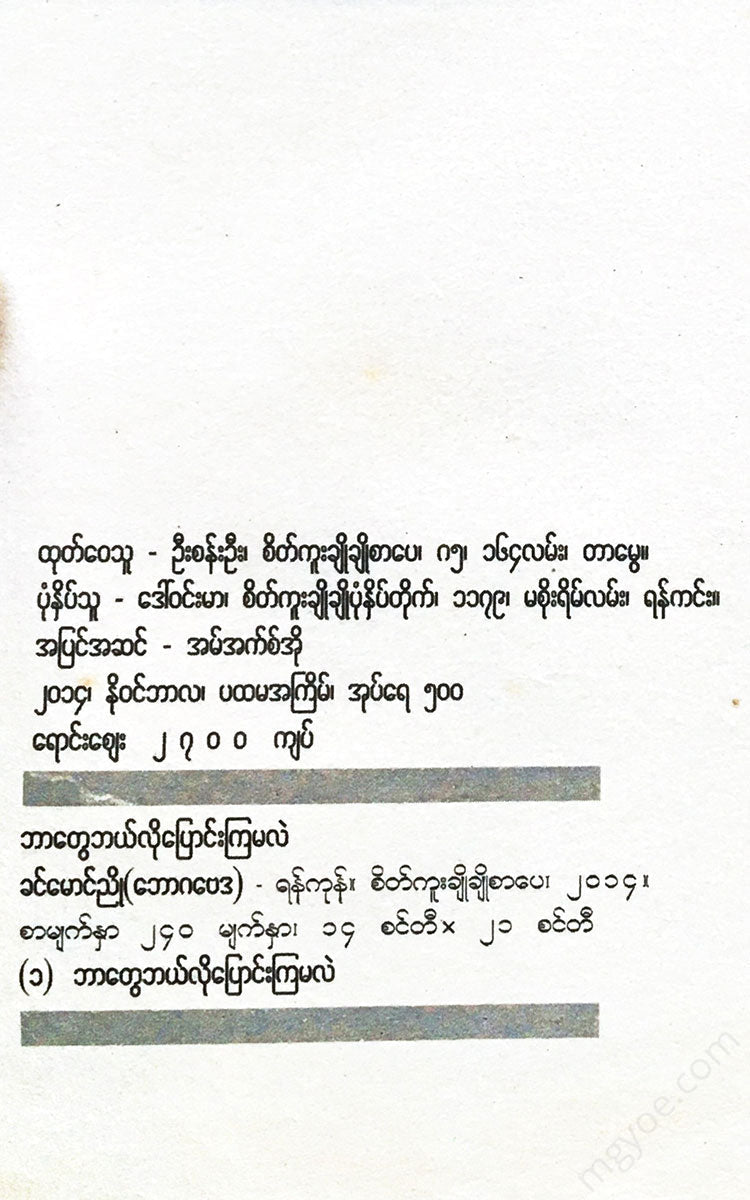 ထုတ်ဝေသူ - ဦးစန်းဦး၊ စိတ်ကူးချိုချိုစာပေ၊ ဂ၅၊ ၁၆၄လမ်း၊ တာမွေ။
ပုံနှိပ်သူ - ဒေါ်ဝင်းမာ၊ စိတ်ကူးချိုချိုပုံနှိပ်တိုက်၊ ၁၁၇၉၊ မစိုးရိမ်လမ်း၊ ရန်ကင်း။
အပြင်အဆင် - အမ်အက်စ်အို
၂၀၁၄၊ နိုဝင်ဘာလ၊ ပထမအကြိမ်၊ အုပ်ရေ ၅၀၀
ရောင်းဈေး ၂၇၀၀ ကျပ်
ဘာတွေဘယ်လိုပြောင်းကြမလဲ
ခင်မောင်ညို(ဘောဂဗေဒ) - ရန်ကုန်။ စိတ်ကူးချိုချိုစာပေ၊ ၂၀၁၄။
စာမျက်နှာ ၂၄၀ မျက်နှာ၊ ၁၄ စင်တီ× ၂၁ စင်တီ
(၁) ဘာတွေဘယ်လိုပြောင်းကြမလဲ
mgyoe.com